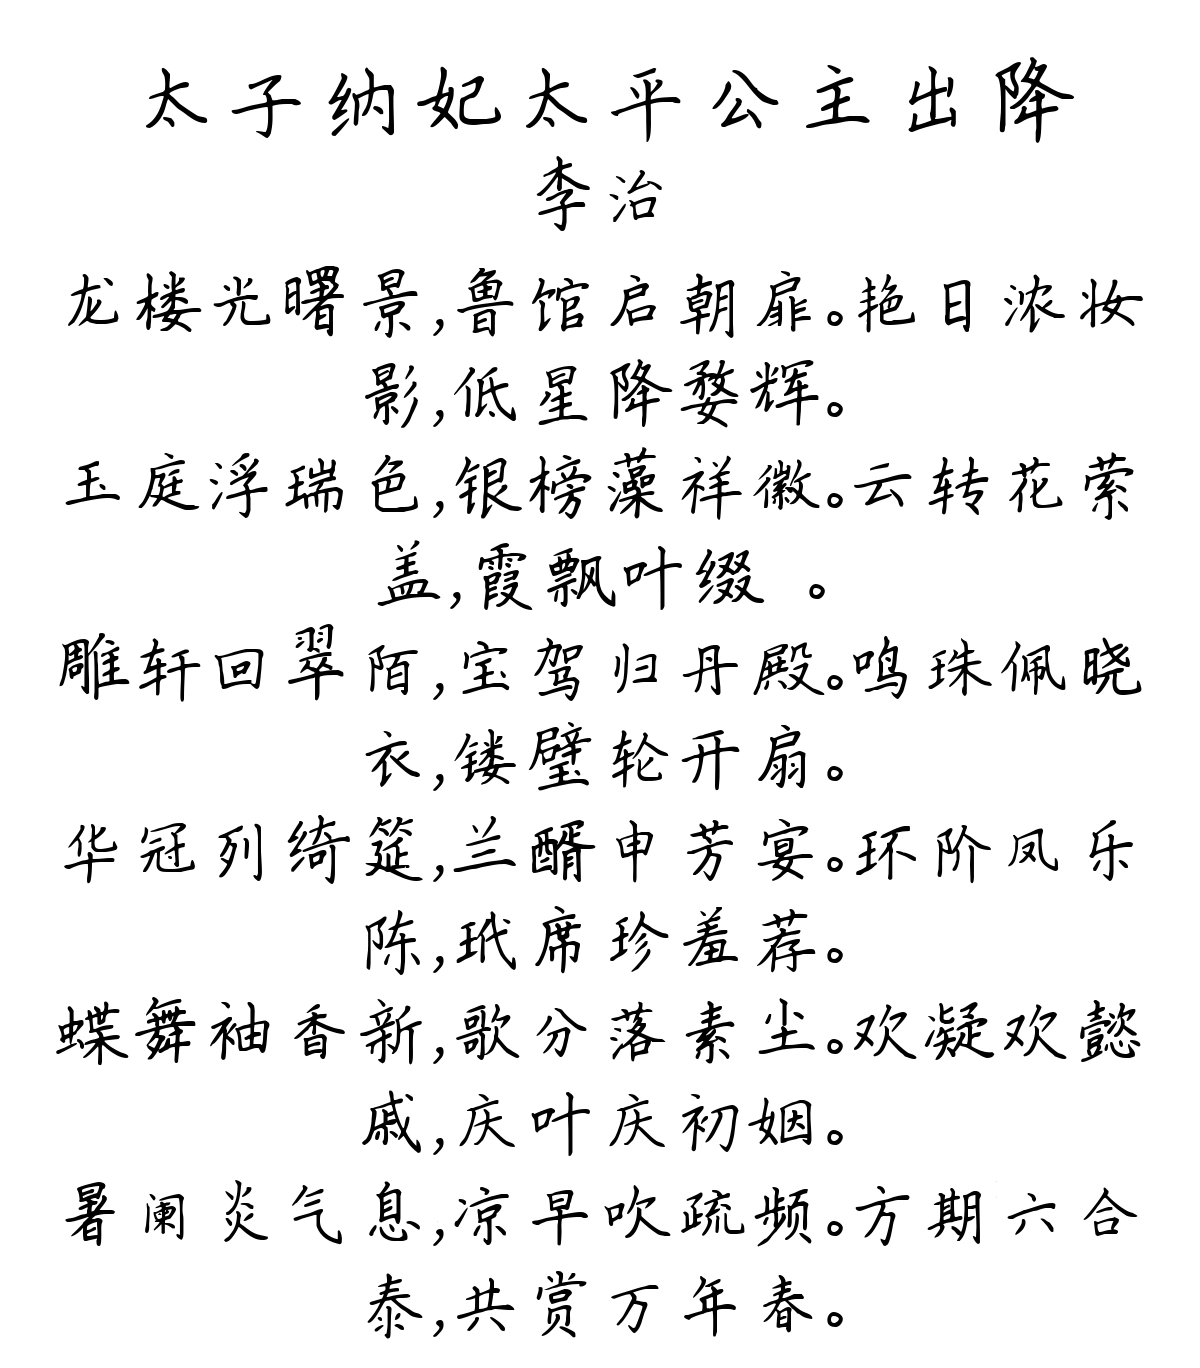 太子纳妃太平公主出降
李治
龙楼光曙景,鲁馆启朝扉。艳日浓妆
影,低星降婺辉。
玉庭浮瑞色,银榜藻祥徽。云转花萦
盖,霞飘叶缀 。
雕轩回翠陌,宝驾归丹殿。鸣珠佩晓
衣,镂璧轮开扇。
华冠列绮筵,兰醑申芳宴。环阶凤乐
陈,玳席珍羞荐。
蝶舞袖香新,歌分落素尘。欢凝欢懿
戚,庆叶庆初姻。
暑阑炎气息,凉早吹疏频。方期六合
泰,共赏万年春。